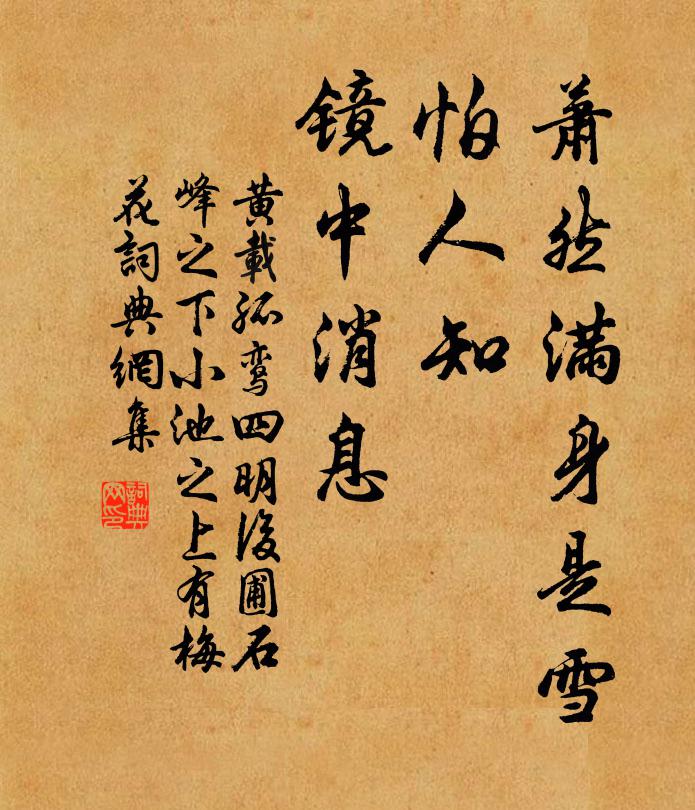 萧然满身是雪
怕人知
镜中消息
黄載孤鸾四明後圃石
峰之下小池之上有梅
花詞典網集
詞典
网印